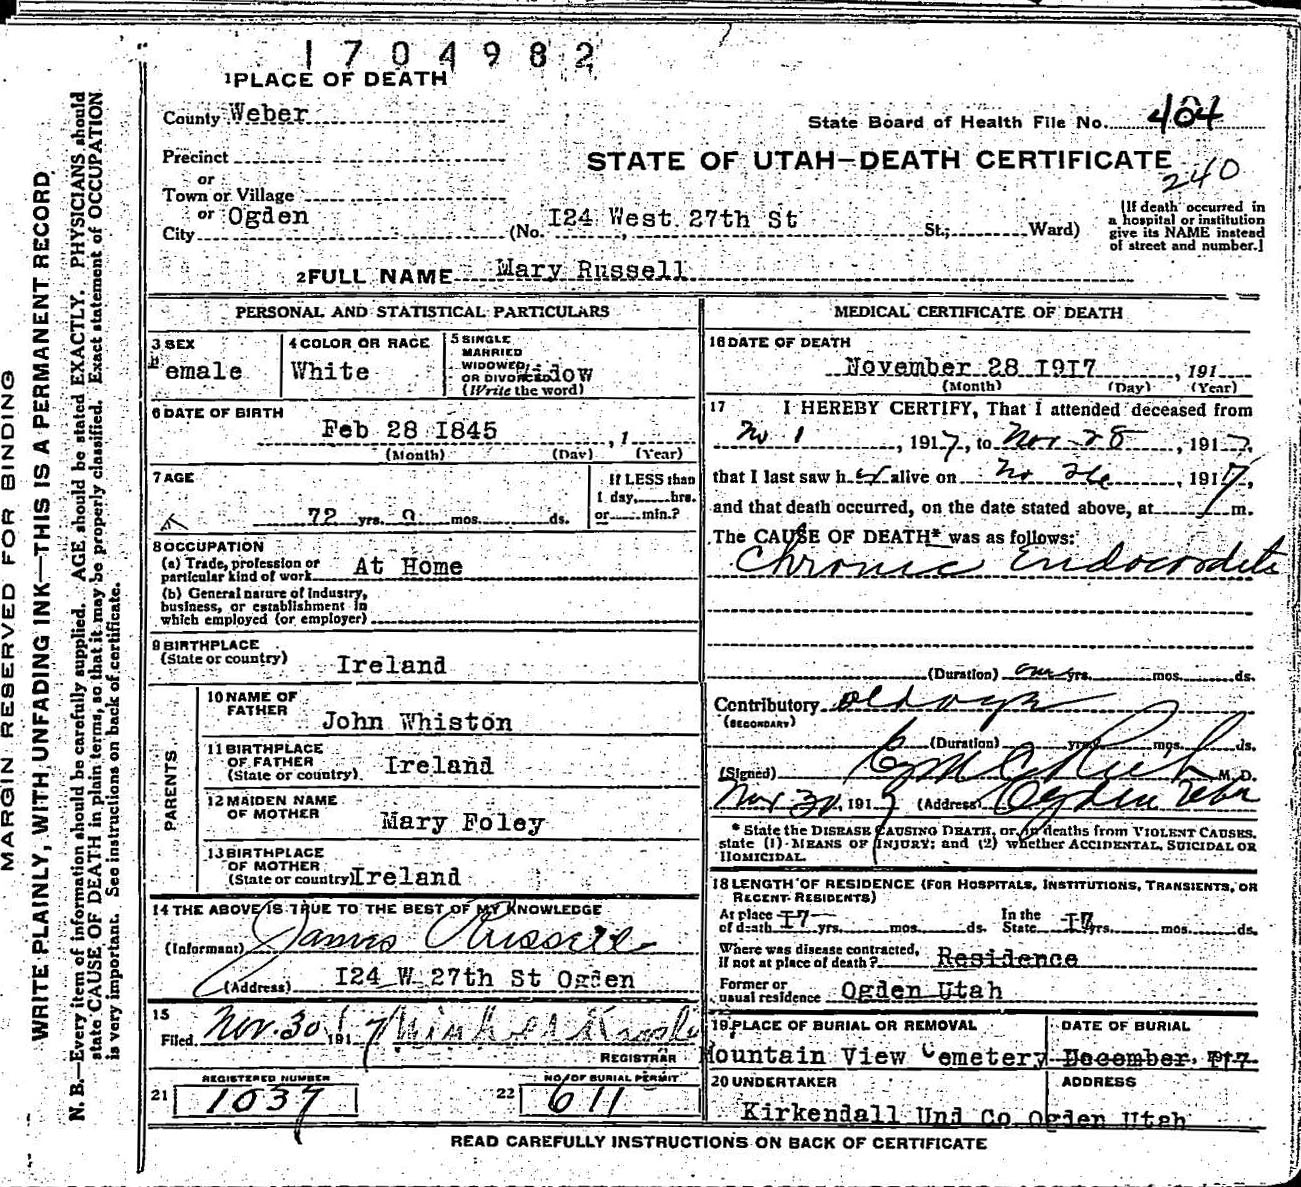 1704982
1 PLACE OF DEATH
County Weber
State Board of Health File No. 404
Precinct
STATE OF UTAH—DEATH CERTIFICATE
240
or
Town or Village
or
City Ogden (No. I24 West 27th St St.; Ward)
(If death occurred in
a hospital or institution
give its NAME instead
of street and number.)
2 FULL NAME Mary Russell
PERSONAL AND STATISTICAL PARTICULARS
3 SEX
Female
4 COLOR OR RACE
White
5 SINGLE
MARRIED
WIDOWED
OR DIVORCED
(Write the word)
Widow
6 DATE OF BIRTH
Feb 28 I845 , 1
(Month) (Day) (Year)
7 AGE
72 yrs. 9 mos. ds.
If LESS than
1 day, hrs.
or min.?
8 OCCUPATION
(a) Trade, profession or
particular kind of work At Home
(b) General nature of Industry,
business, or establishment in
which employed (or employer)
9 BIRTHPLACE
(State or country) Ireland
PARENTS
10 NAME OF
FATHER John Whiston
11 BIRTHPLACE
OF FATHER
(State or country) Ireland
12 MAIDEN NAME
OF MOTHER Mary Foley
13 BIRTHPLACE
OF MOTHER
(State or country) Ireland
14 THE ABOVE IS TRUE TO THE BEST OF MY KNOWLEDGE
(Informant) James Russell
(Address) I24 W 27th St Ogden
15
Filed Nov. 30 1917
REGISTRAR
21 REGISTERED NUMBER 1037
22 NO. OF BURIAL PERMIT 611
MEDICAL CERTIFICATE OF DEATH
16 DATE OF DEATH
November 28 I9I7 , 191
(Month) (Day) (Year)
17 I HEREBY CERTIFY, That I attended deceased from
No 1 , 1917, to Nov 28 , 1917,
that I last saw her alive on , 1917,
and that death occurred, on the date stated above, at m.
The CAUSE OF DEATH* was as follows:
Chronic
(Duration) one yrs. mos. ds.
Contributory old age
(SECONDARY)
(Duration) yrs. mos. ds.
(Signed) M. D.
Nov 30, 1917 (Address) Ogden Utah
* State the DISEASE CAUSING DEATH, or, in deaths from VIOLENT CAUSES,
state (1) MEANS OF INJURY; and (2) whether ACCIDENTAL, SUICIDAL OR
HOMICIDAL.
18 LENGTH OF RESIDENCE (FOR HOSPITALS, INSTITUTIONS, TRANSIENTS, OR
RECENT RESIDENTS)
At place
of death I7 yrs. mos. ds.
In the
State I7 yrs. mos. ds.
Where was disease contracted,
if not at place of death? Residence
Former or
usual residence Ogden Utah
19 PLACE OF BURIAL OR REMOVAL
Mountain View Cemetery
DATE OF BURIAL
December,
20 UNDERTAKER
Kirkendall Und Co
ADDRESS
Ogden Utah
READ CAREFULLY INSTRUCTIONS ON BACK OF CERTIFICATE
MARGIN RESERVED FOR BINDING
WRITE PLAINLY, WITH UNFADING INK—THIS IS A PERMANENT RECORD.
N. B.—Every item of information should be carefully supplied. AGE should be stated EXACTLY. PHYSICIANS should
state CAUSE OF DEATH in plain terms, so that it may be properly classified. Exact statement of OCCUPATION
is very important. See instructions on back of certificate.